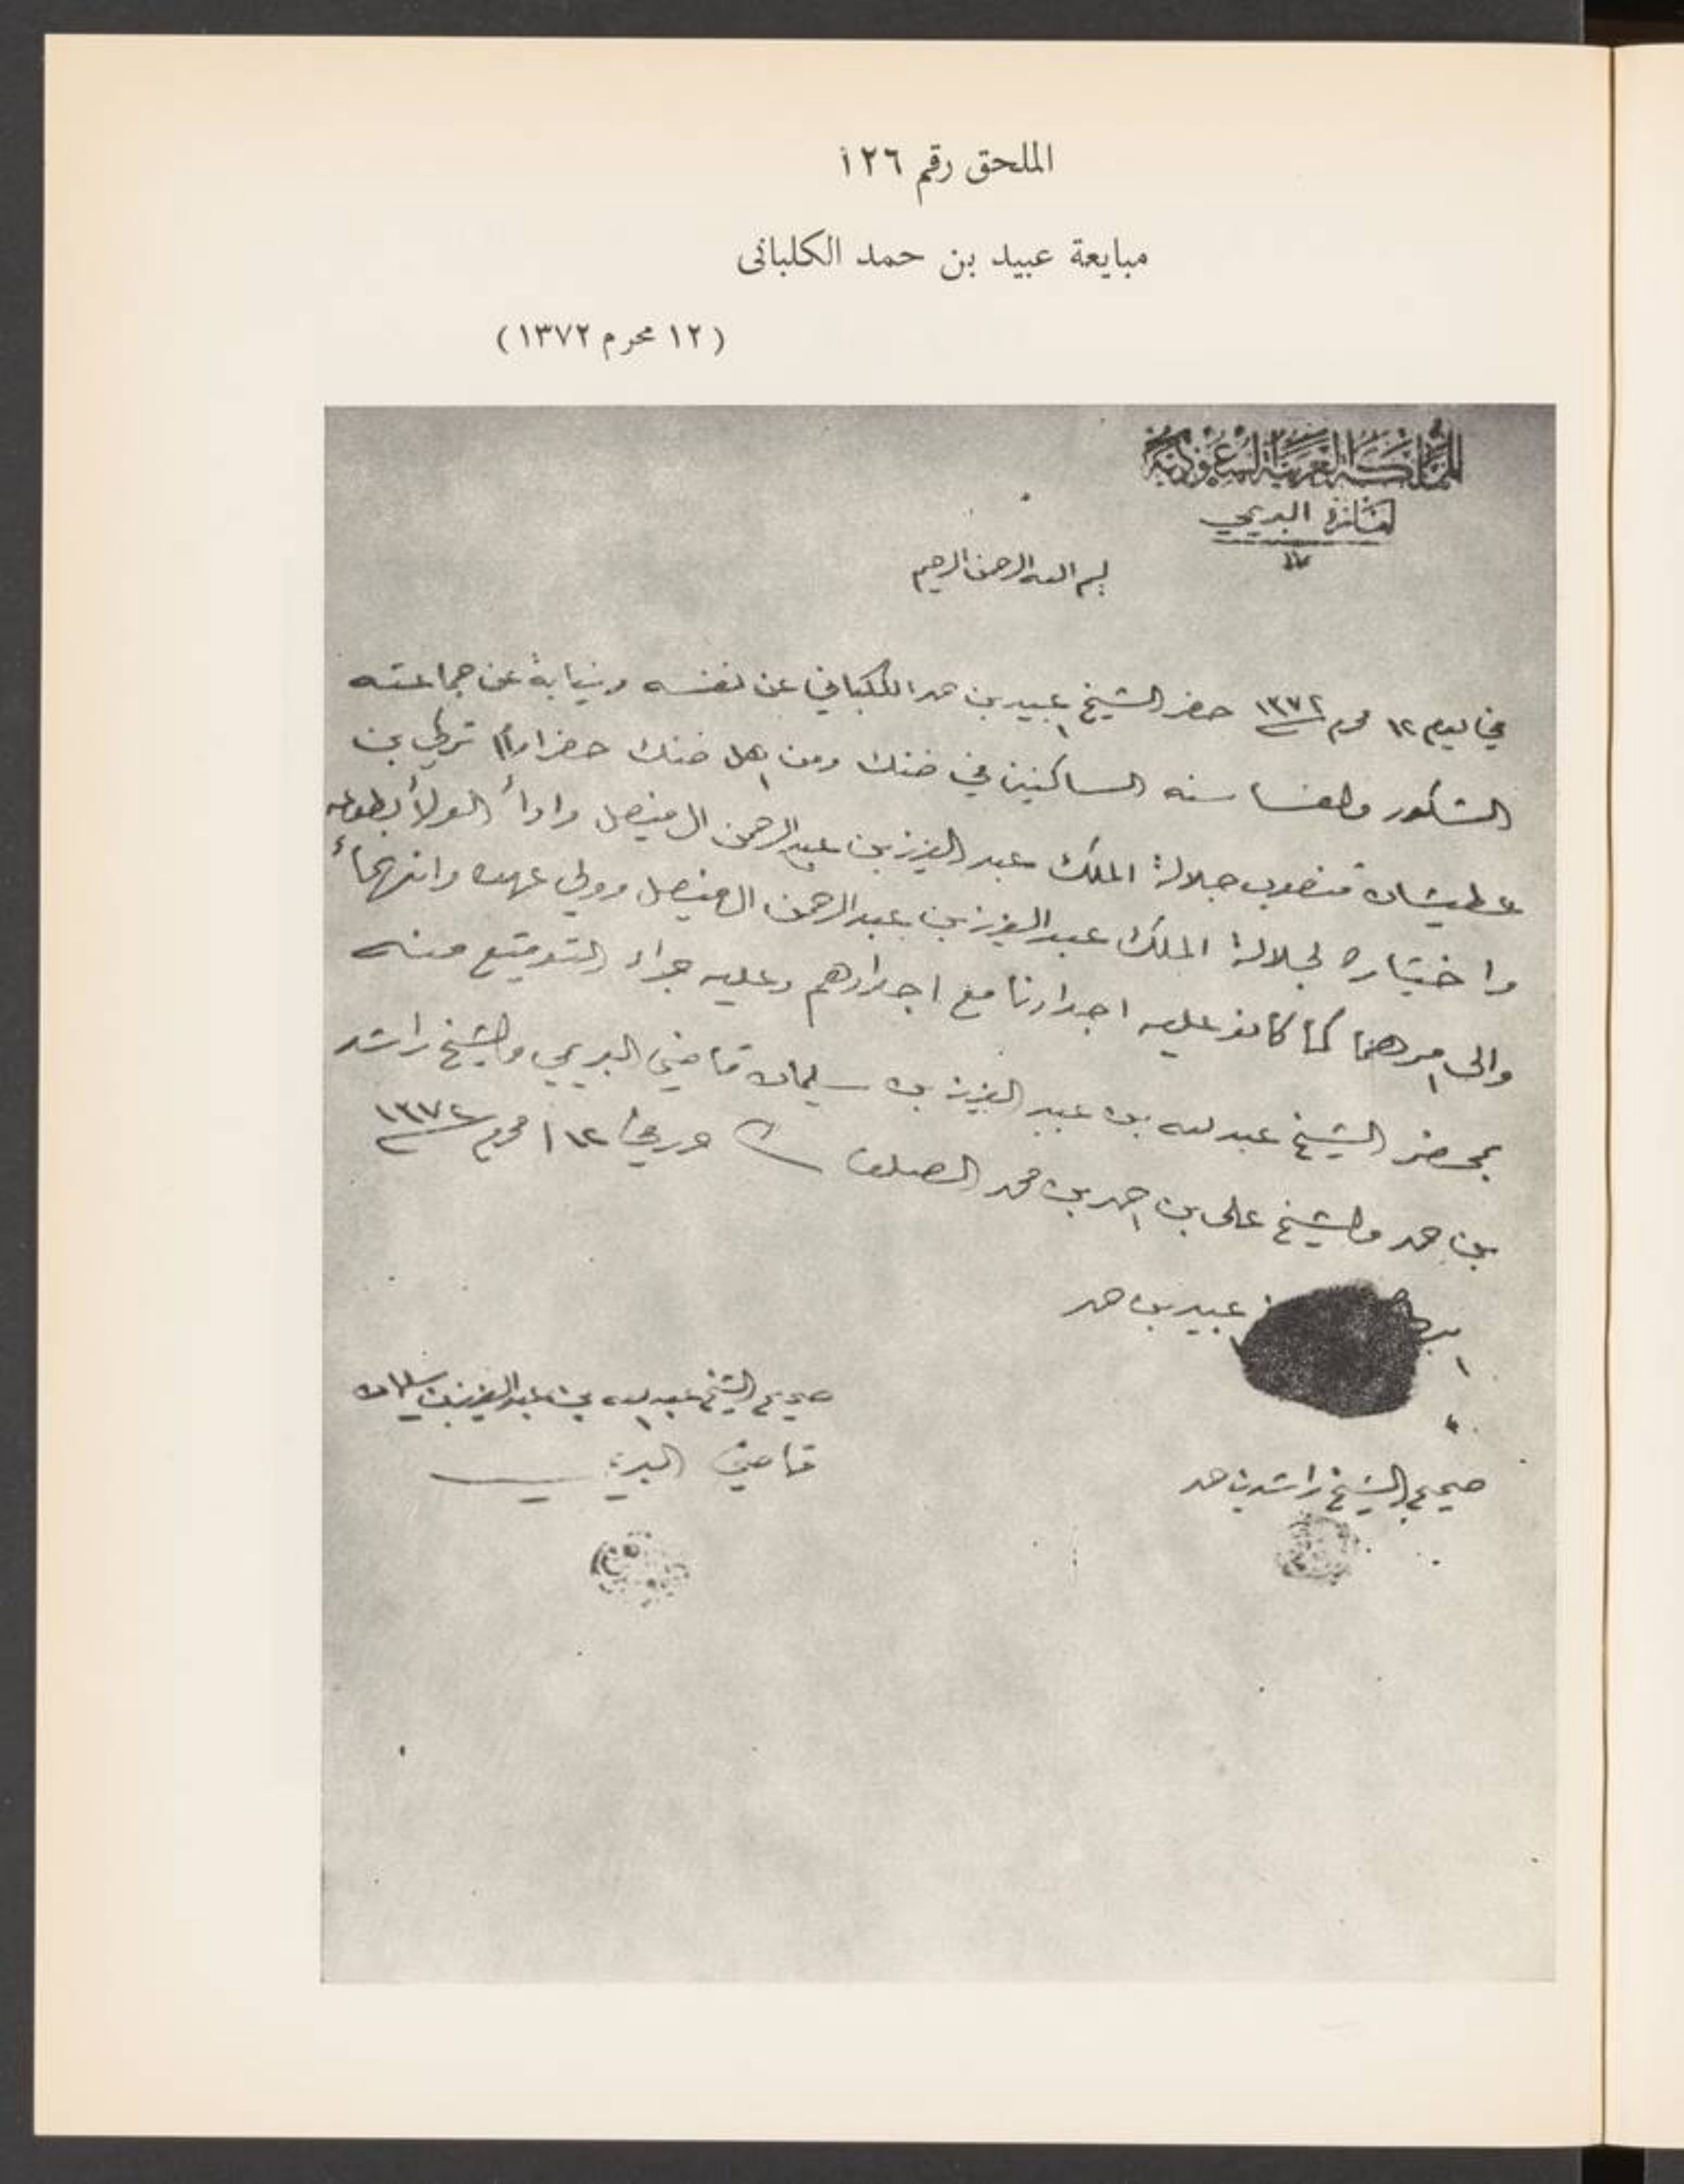 الملحق رقم ١٢٦
مبايعة عبيد بن حمد الكلبانى
(١٢ محرم ١٣٧٢)
المملكة العربية السعودية
البريمي
بسم الله الرحمن الرحيم
في يوم ١٢ محرم ١٣٧٢ حضر الشيخ عبيد بن حمد الكلباني عن نفسه ونيابة عن جماعته
الشكور والغساسنه الساكنين في ضنك ومن اهل ضنك حضر امام تركي بن
عطيشان منصوب جلالة الملك عبد العزيز بن عبد الرحمن ال فيصل وادا الولاء بطوعه
واختياره لجلالة الملك عبد العزيز بن عبد الرحمن ال فيصل وولي عهده وانهما
والى امرهما كما كانو عليه اجدادنا مع اجدادهم وعليه جراء التوقيع منه
بمحضر الشيخ عبد لله بن عبد العزيز بن سليمان قاضي البريمي والشيخ راشد
بن حمد والشيخ على بن احمد بن محمد الصلف حرر في ١٢ محرم ١٣٧٢
عبيد بن حمد
صحيح الشيخ عبد لله بن عبد العزيز بن سليمان
قاضي البريمي
صحيح الشيخ راشد بن حمد